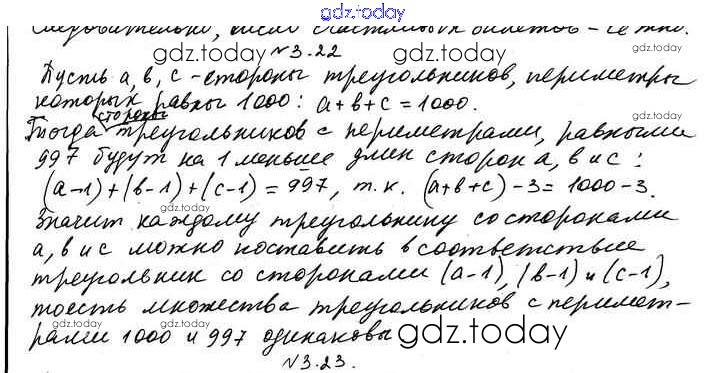 gdz.today
Следовательно, число счастливых билетов - четно.
gdz.today №3.22 gdz.today gdz.today
Пусть a, b, c - стороны треугольников, периметры
которых равны 1000: a+b+c=1000.
стороны
Тогда треугольников с периметрами, равными
997 будут на 1 меньше длин сторон a, b и c:
(a-1)+(b-1)+(c-1)=997, т.к. (a+b+c)-3=1000-3.
gdz.today gdz.today
Значит каждому треугольнику со сторонами
gdz.today
a, b и c можно поставить в соответствие
gdz.today gdz.today
треугольник со сторонами (a-1), (b-1) и (c-1),
тоесть множества треугольников с перимет-
gdz.today gdz.today
рами 1000 и 997 одинаковы gdz.today
gdz.today
№3.23.